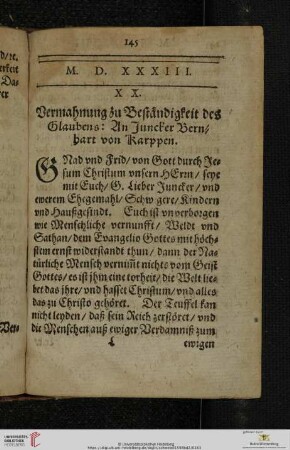 145
M. D. XXXIII.
XX.
Vermahnung zu Beständigkeit des
Glaubens: An Juncker Bern-
hart von Karppen.
GNad vnd Frid/ von Gott durch Je-
sum Christum vnsern HErrn/ seye
mit Euch/ G. Lieber Juncker/ vnd
ewerem Ehegemahl/ Schwgere/ Kindern
vnd Haußgesindt. Euch ist vnverborgen
wie Menschliche vernunfft/ Weldt vnd
Sathan/ dem Evangelio Gottes mit höch-
stem ernst widerstandt thun/ dann der Na-
türliche Mensch vernim̃t nichts vom Geist
Gottes/ es ist jhm eine torheit/ die Welt lie-
bet das ihre/ vnd hasset Christum/ vnd alles
das zu Christo gehöret. Der Teuffel kan
nicht leyden/ daß sein Reich zerstöret/ vnd
die Menschen auß ewiger Verdamniß zum
ewigen